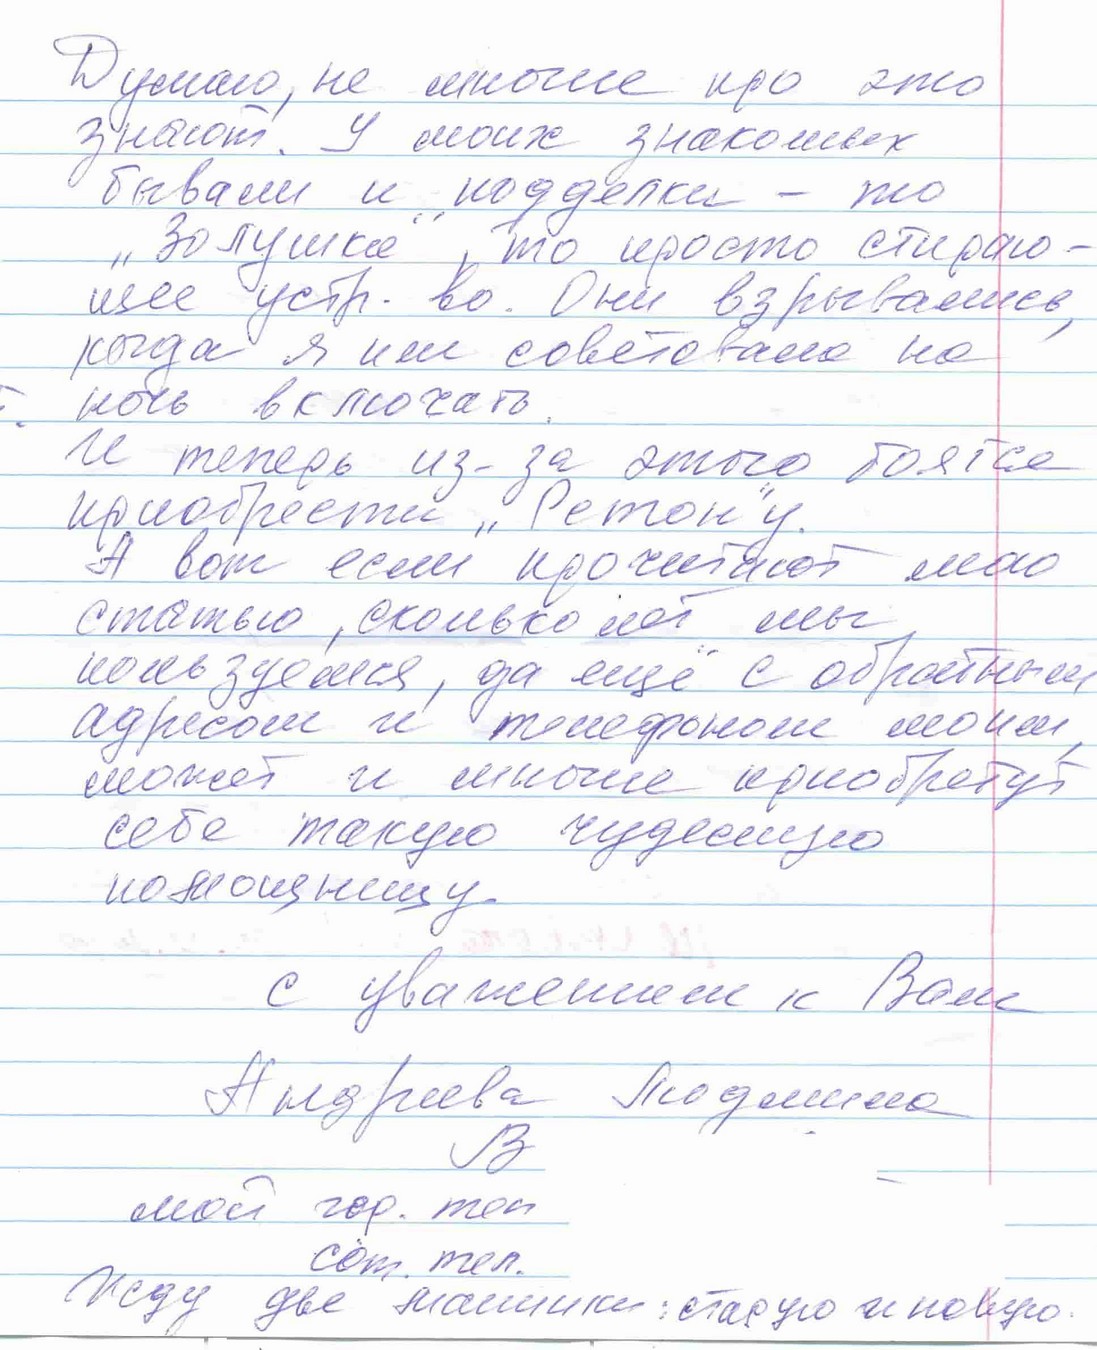 Думаю, не многие про это
знают. У моих знакомых
бывали и подделки – то
„Золушка", то просто стираю-
щее устр-во. Они взрывались,
когда я им советовала на
т. ночь включать.
И теперь из-за этого боятся
приобрести „Ретон"у.
А вот если прочитают мою
статью, сколько лет мы
пользуемся, да ещё с обратным
адресом и телефоном моим,
может и многие приобретут
себе такую чудесную
помощницу.
с уважением к Вам
Андреева Людмила
В
мой гор. тел
сот. тел.
Жду две машинки: старую и новую.